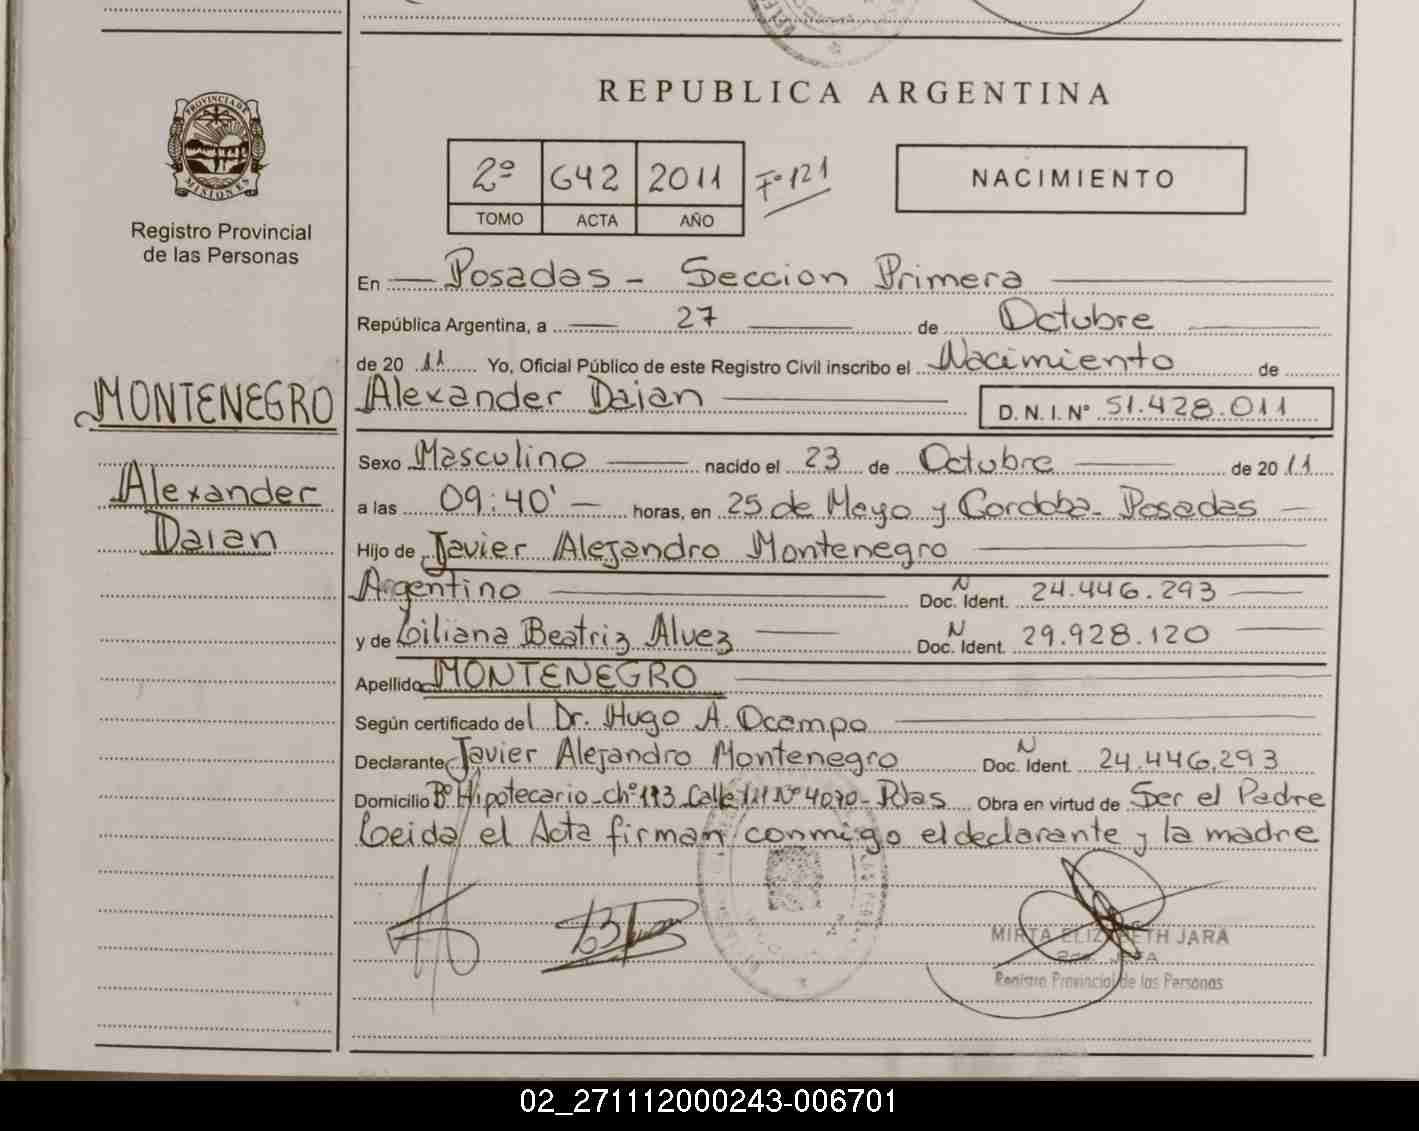 REPUBLICA ARGENTINA
PROVINCIA DE
MISIONES
Registro Provincial
de las Personas
2º 642 2011 Fº 121
TOMO ACTA AÑO
NACIMIENTO
En Posadas - Seccion Primera
República Argentina, a 27 de Octubre
de 20 11 Yo, Oficial Público de este Registro Civil inscribo el Nacimiento de
Alexander Daian D. N. I. Nº 51.428.011
MONTENEGRO
Alexander
Daian
Sexo Masculino nacido el 23 de Octubre de 20 11
a las 09:40' horas, en 25 de Mayo y Cordoba - Posadas
Hijo de Javier Alejandro Montenegro
Argentino N Doc. Ident. 24.446.293
y de Liliana Beatriz Alvez N Doc. Ident. 29.928.120
Apellido MONTENEGRO
Según certificado del Dr. Hugo A. Ocampo
Declarante Javier Alejandro Montenegro N Doc. Ident. 24.446.293
Domicilio Bº Hipotecario - chº 193 Calle Nº 4070 - Pdas Obra en virtud de Ser el Padre
Leida el Acta firman conmigo el declarante y la madre
MIRTA ELIZABETH JARA
Registro Provincial de las Personas
02_271112000243-006701